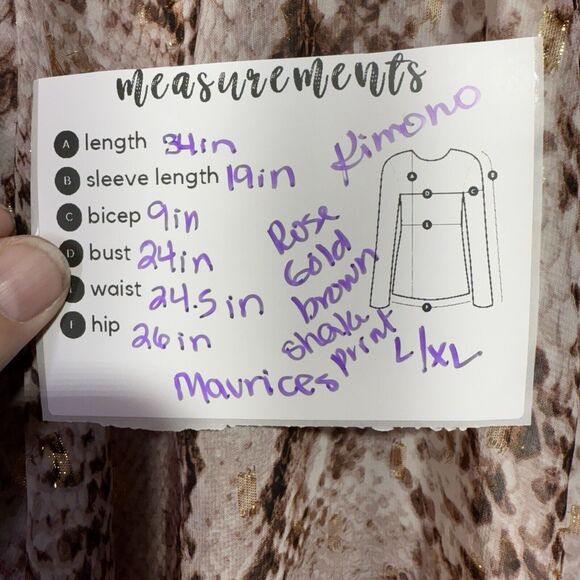 measurements
A length 34in
B sleeve length 19in
C bicep 9in
D bust 24in
waist 24.5 in
F hip 26 in
Kimono
Rose
Gold
brown
snake
print
L/XL
Maurices
A
B
C
D
E
F